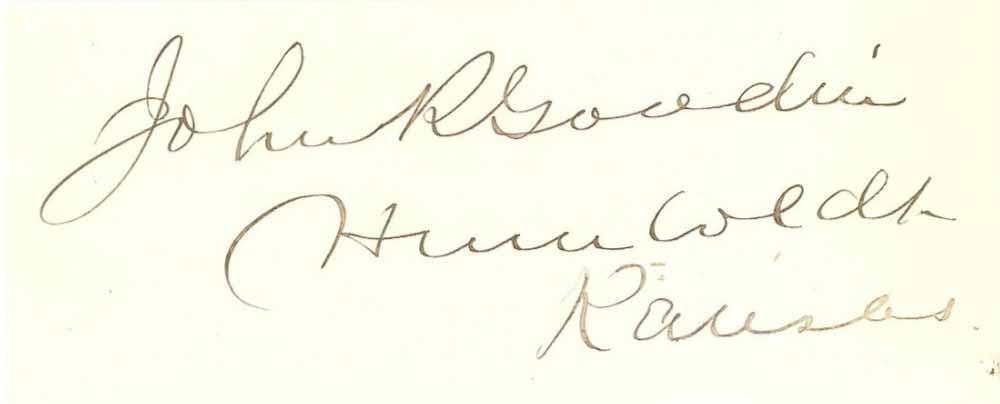 John R Goodin
Humboldt
Kansas.